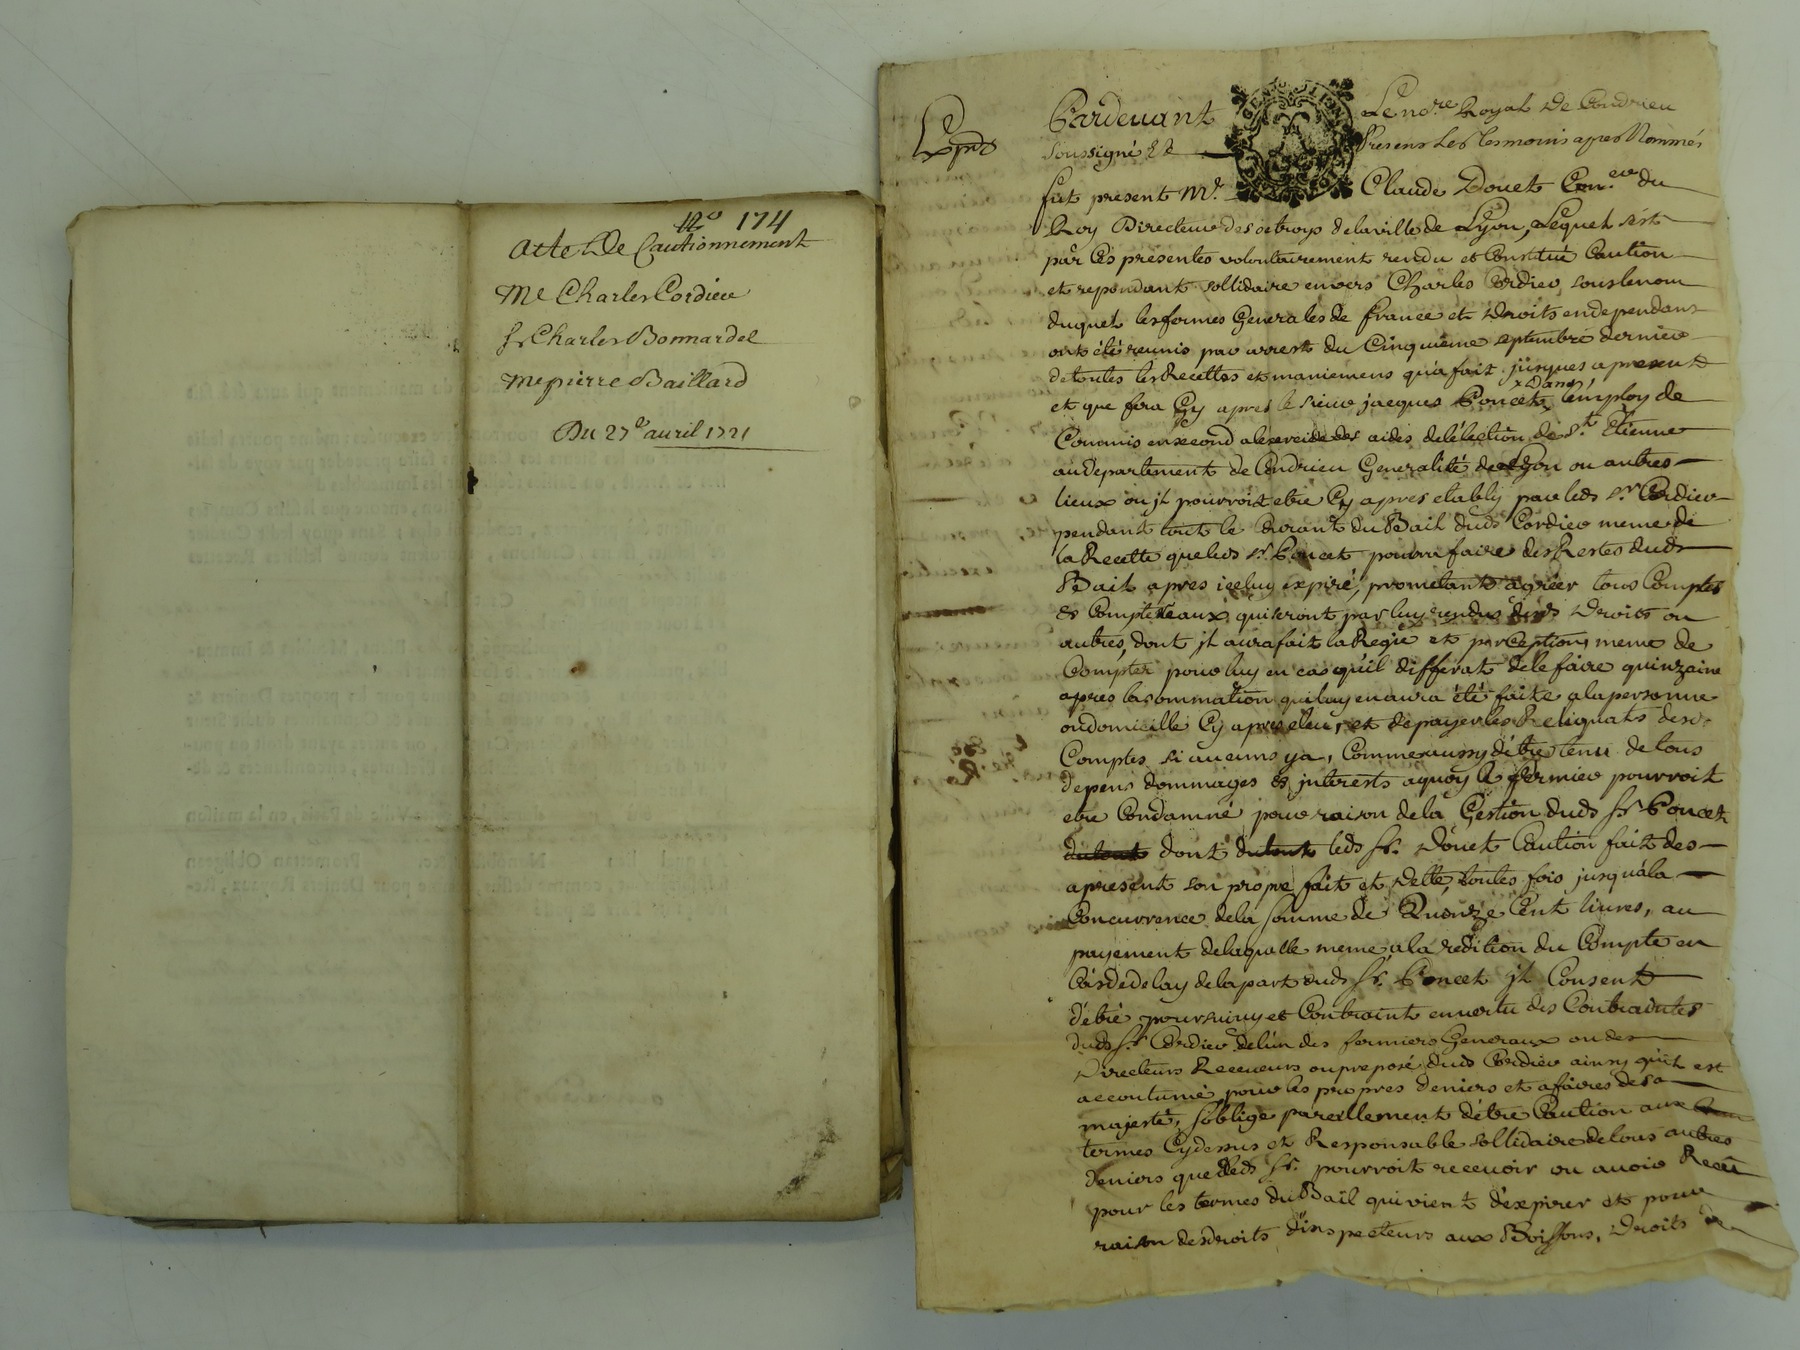 No 174
Acte De Cautionnement
Me Charles Cordier
Sr Charles Bonnardel
Me pierre Baillard
Du 27e auril 1721
Pardeuant Le nore Royal de Condrieu
soussigné Et Presens Les tesmoins apres Nommés
fut present Mr. Claude Douet Coner du
Roy Directeur des octroys de la ville de Lyon, Lequel s'est
par Ces presentes volontairement rendu et Constitué Caution
et repondant sollidaire envers Charles Cordier, sous le nom
duquel les fermes Generales de france et Droits en dependans
ont été reunis par arrest du Cinquieme septembre dernier
de toutes les Recettes et maniemens qu'a fait jusques apresent
et que fera Cy apres le sieur jacques Poncet x Dans l'employ de
Commis en second a l'exercice des aides de l'élection de St. Etienne
au departement de Condrieu Generalité de Lyon ou autres
lieux ou jl pourroit etre Cy apres etably par leds sr Cordier
pendant tout le Courant du Bail duds Cordier meme de
la Recette que leds sr. Poncet pourra faire des Restes duds
Bail apres iceluy expiré, prometant d'agréer tous Comptes
et Comptereaux qui seront par luy rendus desds Droits ou
autres, dont jl aura fait la Regie et perception, meme de
Compter pour luy en cas qu'il differat de le faire quinzaine
apres la sommation qui luy en aura été faite a la personne
ou domicille Cy apres eleu, et de payer les Reliquats desds
Comptes si aucuns y a, Comme aussy d'etre tenu de tous
depens dommages et jnterests a quoy le fermier pourroit
etre Condamné pour raison de la Gestion duds sr Poncet
dont leds sr. Douet Caution fait des
apresent son propre fait et dette, toutes fois jusqu'a la
Concurrence de la somme de Quinze Cent liures, au
payement de laquelle meme a la redition du Compte en
Cas de delay de la part duds sr. Poncet jl Consent
d'etre poursuiuy et Contraint en vertu des Contraintes
duds sr. Cordier de l'un des fermiers Generaux ou des
Directeurs Receueurs ou preposé duds Cordier ainsy qu'il est
accoutumé pour les propres deniers et afaires de sa
majesté, s'oblige pareillement d'etre Caution aux
termes Cy dessus et Responsable sollidaire de tous autres
deniers que leds sr. pourroit receuoir ou auoir Receu
pour les termes du Bail qui vient d'expirer et pour
raison des droits d'inspecteurs aux Boissons, Droits de